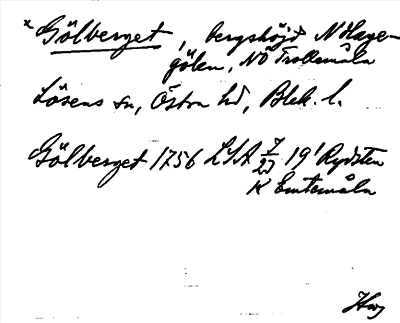 × Gölberget, bergshöjd N Hage-
gölen, NÖ Trollemåla
Lösens sn, Östra hd, Blek. l.
Gölberget 1756 LSA 7/27 19¹ Rydsten
K Emtemåla